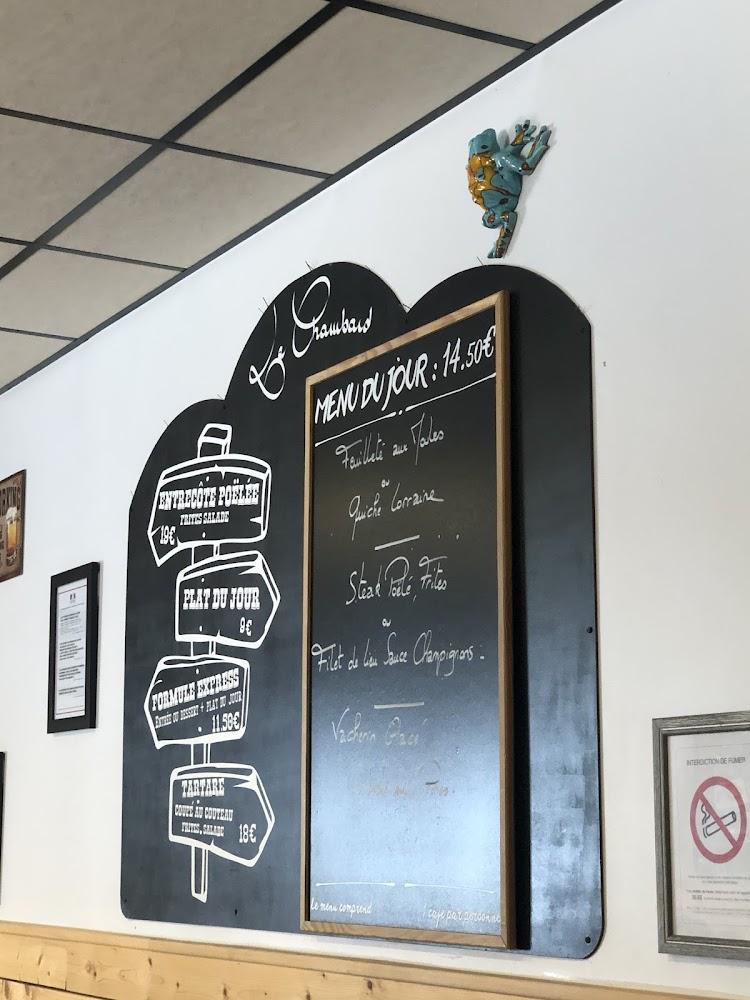 Le Grambard
ENTRECÔTE POËLÉE
FRITES SALADE
19€
PLAT DU JOUR
9€
FORMULE EXPRESS
ENTRÉE OU DESSERT + PLAT DU JOUR
11.50€
TARTARE
COUPÉ AU COUTEAU
FRITES, SALADE
18€
MENU DU JOUR : 14.50€
Feuilleté aux Moules
ou
Quiche Lorraine
Steak Poêlé, Frites
ou
Filet de lieu Sauce Champignons -
Vacherin Glacé
le menu comprend
1 café par personne
INTERDICTION DE FUMER